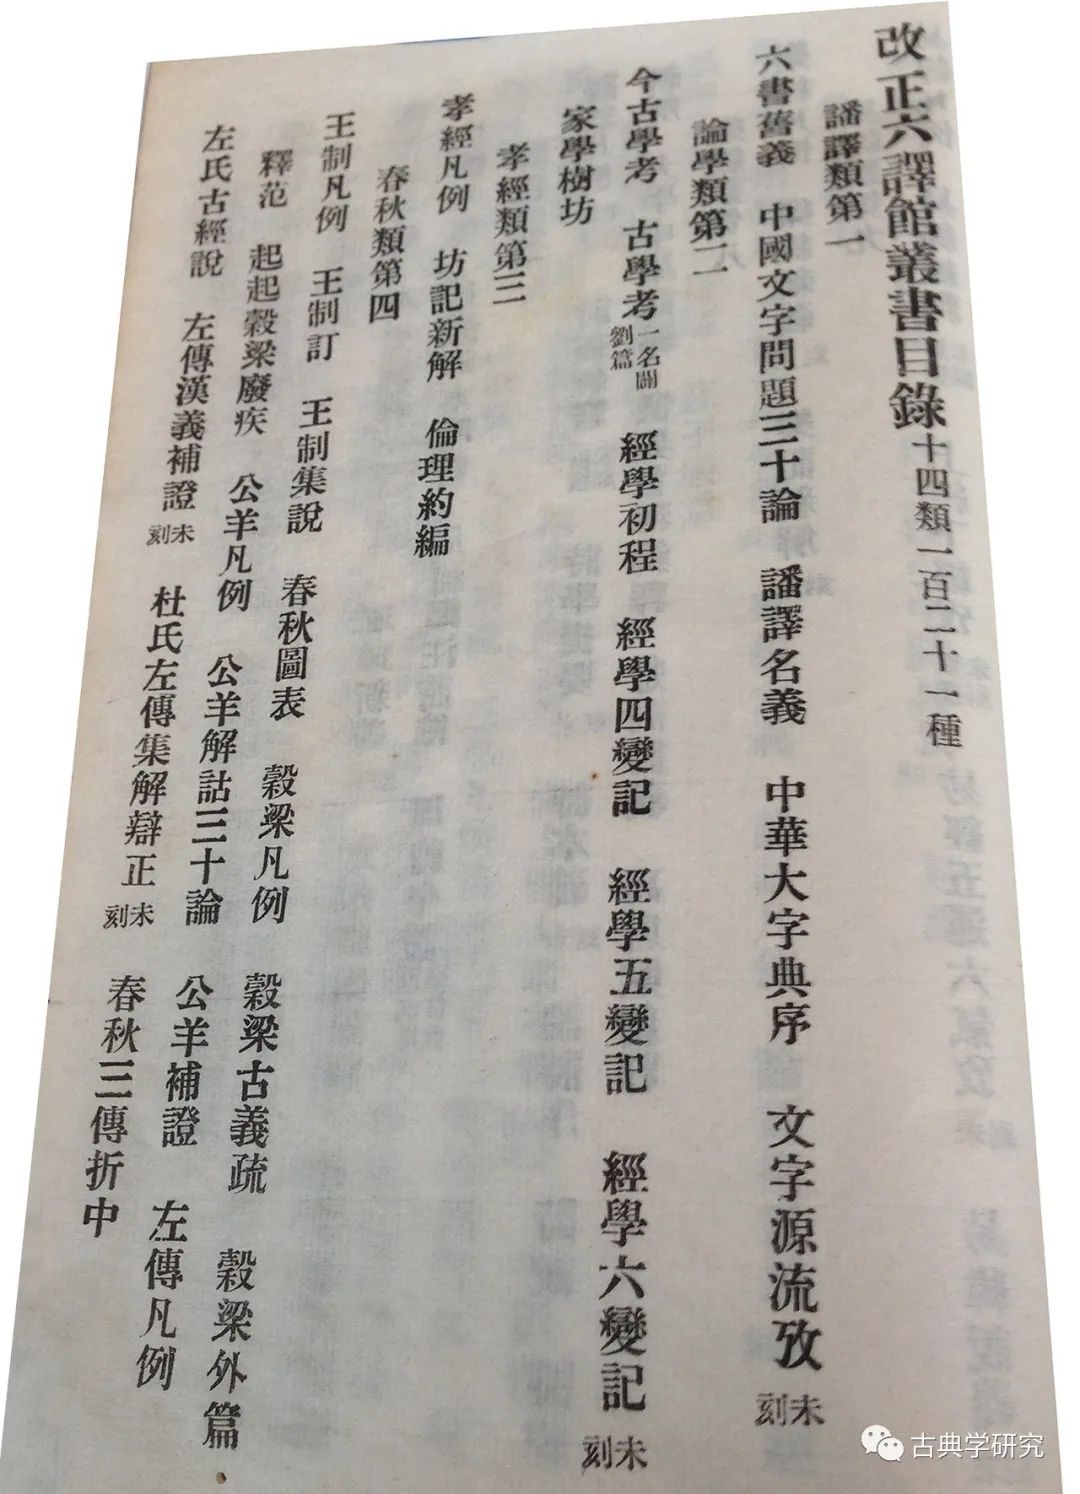 改正六譯館叢書目錄十四類一百二十一種
譒譯類第一
六書舊義　中國文字問題三十論　譒譯名義　中華大字典序　文字源流攷未刻
論學類第二
今古學考　古學考一名闢劉篇　經學初程　經學四變記　經學五變記　經學六變記未刻
家學樹坊
孝經類第三
孝經凡例　坊記新解　倫理約編
春秋類第四
王制凡例　王制訂　王制集說　春秋圖表　穀梁凡例　穀梁古義疏　穀梁外篇
釋范　起起穀梁廢疾　公羊凡例　公羊解詁三十論　公羊補證　左傳凡例
左氏古經說　左傳漢義補證未刻　杜氏左傳集解辯正未刻　春秋三傳折中
古典学研究